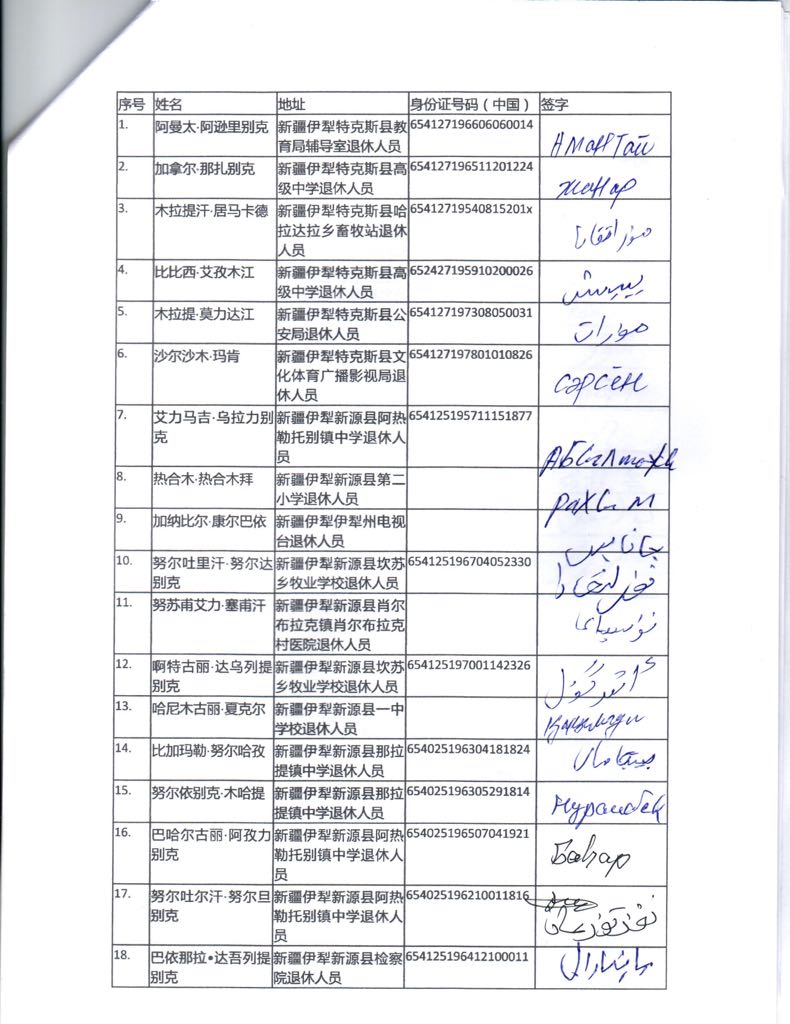 序号 姓名 地址 身份证号码（中国） 签字
1. 阿曼太·阿逊里别克 新疆伊犁特克斯县教 654127196606060014
育局辅导室退休人员 АманТай
2. 加拿尔·那扎别克 新疆伊犁特克斯县高 654127196511201224
级中学退休人员 Жанар
3. 木拉提汗·居马卡德 新疆伊犁特克斯县哈 65412719540815201x
拉达拉乡畜牧站退休
人员
4. 比比西·艾孜木江 新疆伊犁特克斯县高 652427195910200026
级中学退休人员
5. 木拉提·莫力达江 新疆伊犁特克斯县公 654127197308050031
安局退休人员 مورات
6. 沙尔沙木·玛肯 新疆伊犁特克斯县文 654127197801010826
化体育广播影视局退
休人员 Сәрсен
7. 艾力马吉·乌拉力别 新疆伊犁新源县阿热 654125195711151877
克 勒托别镇中学退休人
员
8. 热合木·热合木拜 新疆伊犁新源县第二
小学退休人员
9. 加纳比尔·康尔巴依 新疆伊犁伊犁州电视
台退休人员
10. 努尔吐里汗·努尔达 新疆伊犁新源县坎苏 654125196704052330
别克 乡牧业学校退休人员
11. 努苏甫艾力·塞甫汗 新疆伊犁新源县肖尔
布拉克镇肖尔布拉克
村医院退休人员
12. 啊特古丽·达乌列提 新疆伊犁新源县坎苏 654125197001142326
别克 乡牧业学校退休人员
13. 哈尼木古丽·夏克尔 新疆伊犁新源县一中
学校退休人员
14. 比加玛勒·努尔哈孜 新疆伊犁新源县那拉 654025196304181824
提镇中学退休人员
15. 努尔依别克·木哈提 新疆伊犁新源县那拉 654025196305291814
提镇中学退休人员 Нуранбек
16. 巴哈尔古丽·阿孜力 新疆伊犁新源县阿热 654025196507041921
别克 勒托别镇中学退休人 Баһар
员
17. 努尔吐尔汗·努尔旦 新疆伊犁新源县阿热 654025196210011816
别克 勒托别镇中学退休人
员
18. 巴依那拉•达吾列提 新疆伊犁新源县检察 654125196412100011
别克 院退休人员